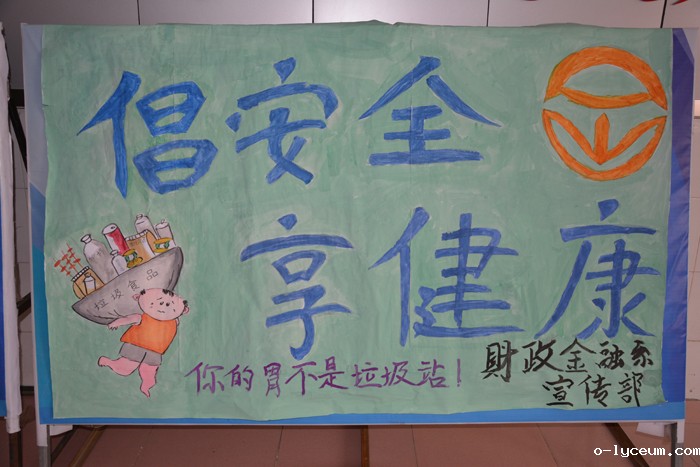 倡安全
享健康
垃圾食品
你的胃不是垃圾站!
財政金融系
宣传部
o-lyceum.com